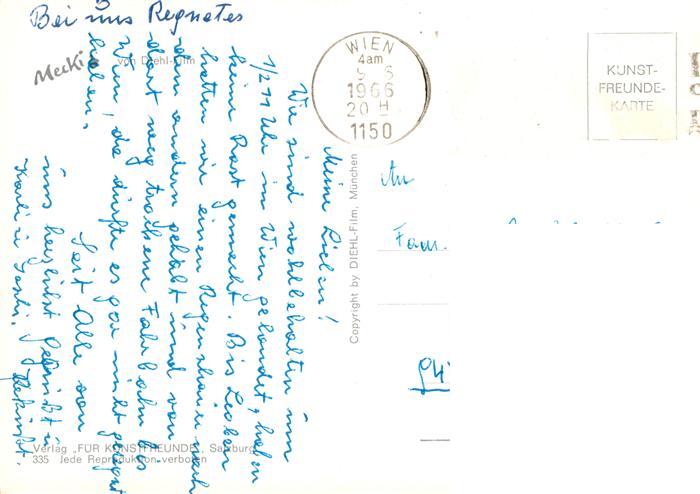 Bei uns Regnetes
Mecki von Diehl-Film
Meine Lieben!
Wir sind wohlbehalten um
1/2 11 Uhr in Wien gelandet, haben
keine Rast gemacht. Bis Leoben
hatten wir einen Regenschauer nach
dem andern gehabt und von
dort weg trockene Fahrbahn bis
Wien, da dürfte es gar nicht geregnet
haben.
Seit Alle von
uns herzlichst gegrüßt u
geküßt.
Karli u
WIEN
4am
1966
20 H
1150
KUNST-
FREUNDE-
KARTE
An
Fam.
Copyright by DIEHL-Film, München
Verlag „FÜR KUNSTFREUNDE", Salzburg
335 Jede Reproduktion verboten